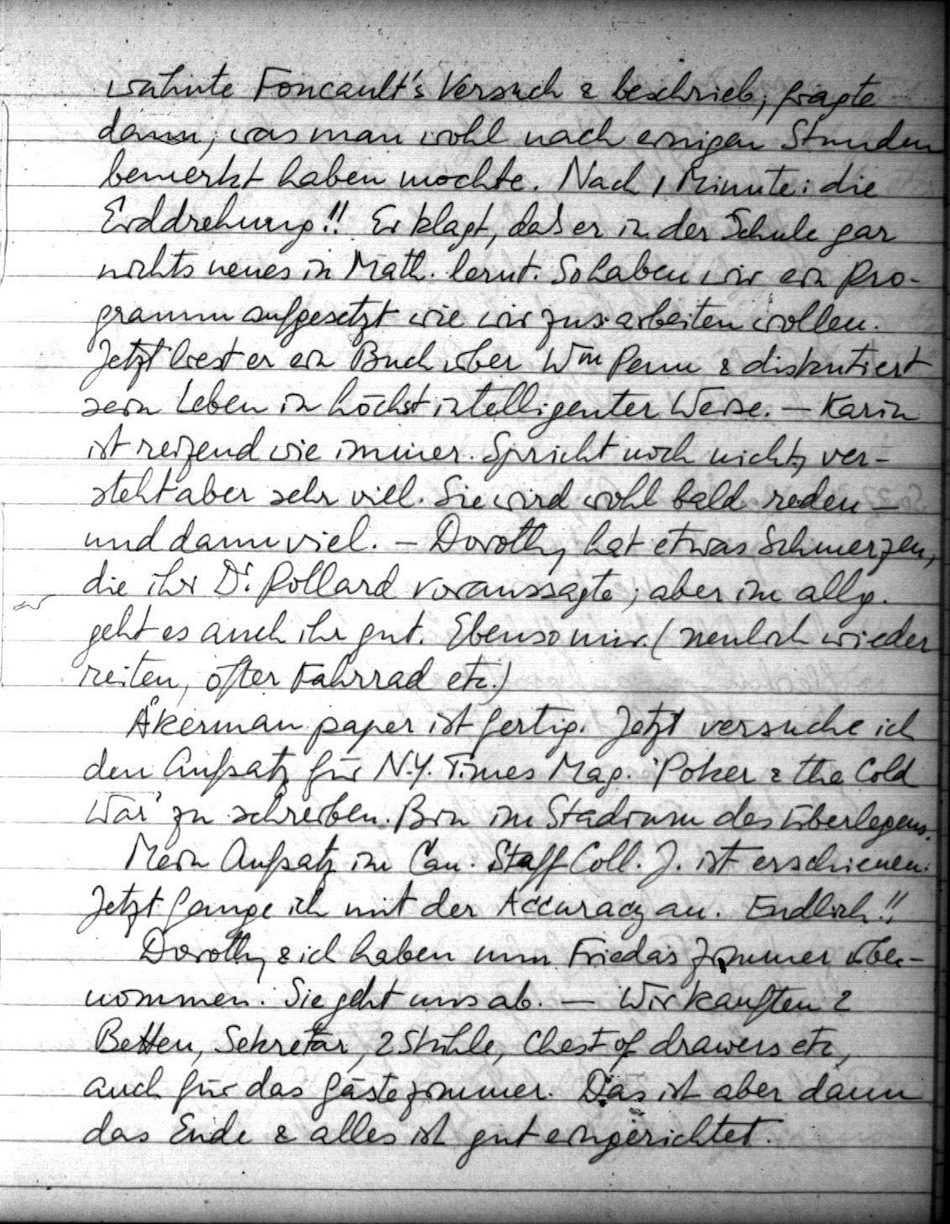 wähnte Foucault's Versuch & beschrieb, fragte
dann, was man wohl nach einigen Stunden
bemerkt haben mochte. Nach 1 Minute: die
Erddrehung!! Er klagt, daß er in der Schule gar
nichts neues in Math. lernt. So haben wir ein Pro-
gramm aufgesetzt wie wir zus. arbeiten wollen.
Jetzt liest er ein Buch über Wm Penn & diskutiert
sein Leben in höchst intelligenter Weise. — Karin
ist reizend wie immer. Spricht noch nicht, ver-
steht aber sehr viel. Sie wird wohl bald reden —
und dann viel. — Dorothy hat etwas Schmerzen,
die ihr Dr. Pollard voraussagte; aber im allg.
geht es auch ihr gut. Ebenso mir (neulich wieder
reiten, öfter Fahrrad etc.)
Åkerman paper ist fertig. Jetzt versuche ich
den Aufsatz für N.Y. Times Mag. 'Poker & the Cold
War' zu schreiben. Bin im Stadium des Überlegens.
Mein Aufsatz im Can. Staff Coll. J. ist erschienen.
Jetzt fange ich mit der Accuracy an. Endlich!!
Dorothy & ich haben nun Friedas Zimmer über-
nommen. Sie geht uns ab. — Wir kauften 2
Betten, Sekretär, 2 Stühle, Chest of drawers etc,
auch für das Gästezimmer. Das ist aber dann
das Ende & alles ist gut eingerichtet.